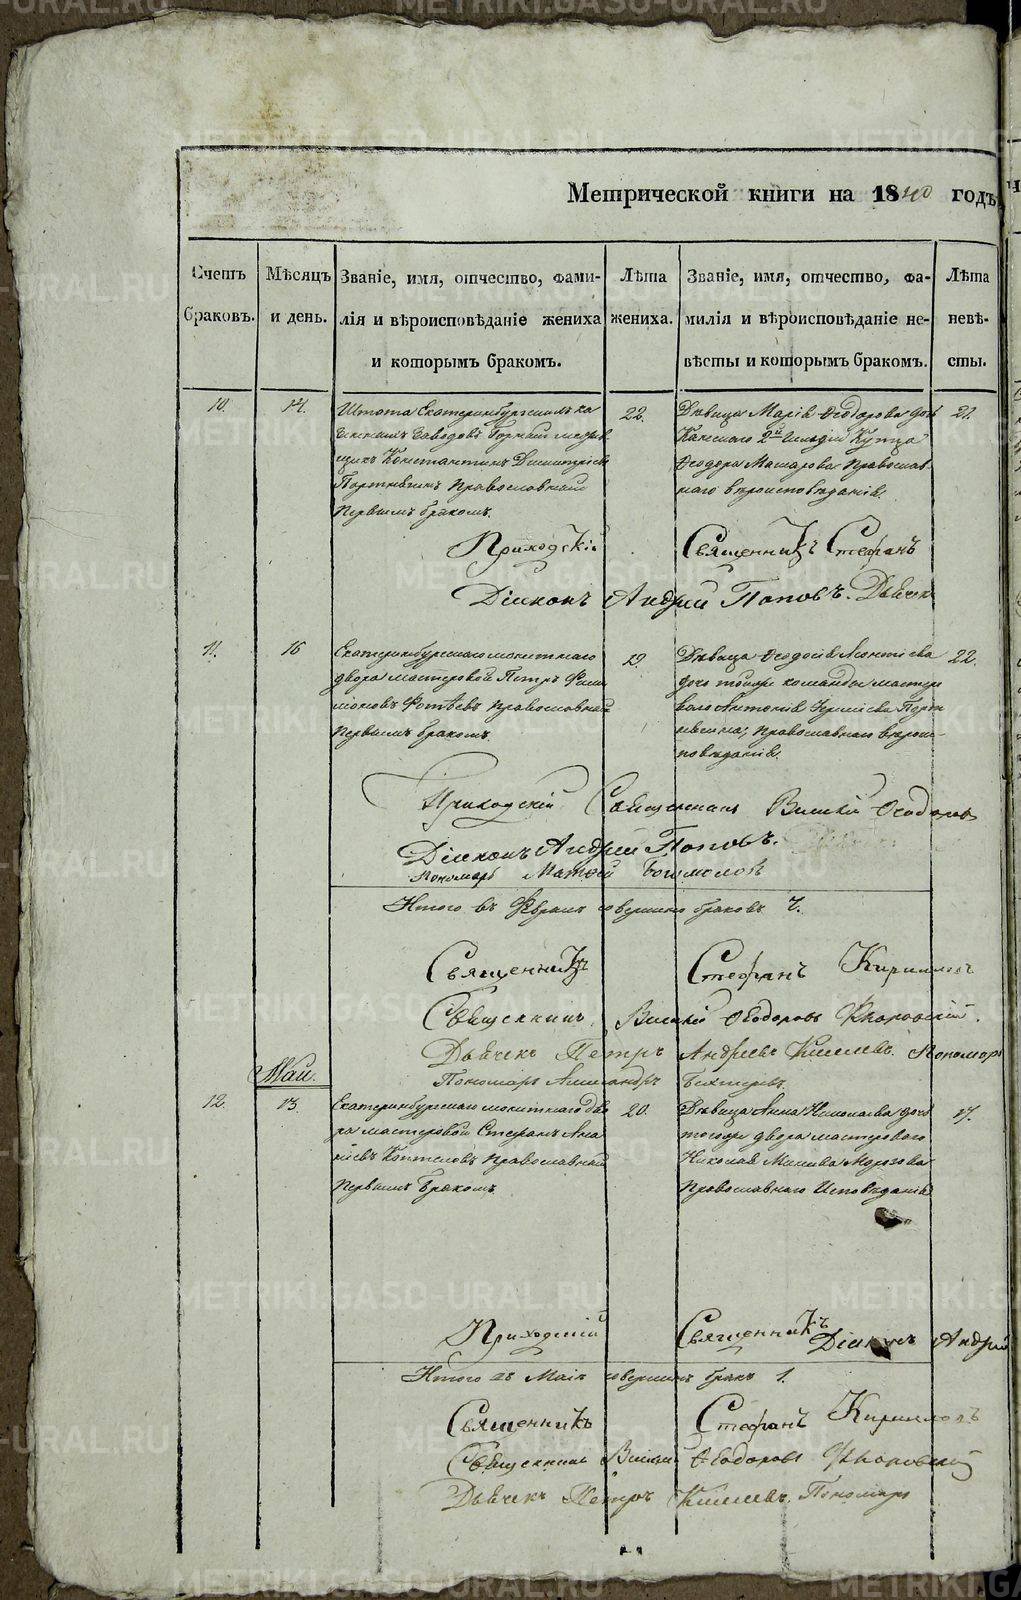 Метрической книги на 1840 годъ
Счетъ браковъ.
Мѣсяцъ и день.
Званіе, имя, отчество, фами-
лія и вѣроисповѣданіе жениха
и которымъ бракомъ.
Лѣта жениха.
Званіе, имя, отчество, фа-
милія и вѣроисповѣданіе не-
вѣсты и которымъ бракомъ.
Лѣта невѣ-
сты.
10.
14.
Штата Екатеринбургскихъ ка
зенныхъ заводовъ Горный
щикъ Константинъ Димитріевъ
Портнягинъ Православный
Первымъ бракомъ.
22.
Дѣвица Марія Ѳеодорова дочь
2й Гильдіи Купца
Ѳеодора Макарова Православ-
наго вѣроисповѣданія.
21.
Приходскій Священникъ Стефанъ
Діаконъ Андрей Поповъ. Дьячек
11.
16
Екатеринбургскаго монетнаго
двора мастеровой Петръ Фили
моновъ Православный
Первымъ бракомъ
19.
Дѣвица Ѳеодосія Леонтіева
дочь тойже команды мастеро
ваго
Православнаго вѣроис-
повѣданія.
22.
Приходскій Священникъ Василій Ѳеодоровъ
Діаконъ Андрей Поповъ.
Пономарь Матвей Богомоловъ
Итого въ Февралѣ совершено браковъ 4.
Священникъ Стефанъ Кирилловъ
Священникъ Василій Ѳеодоровъ Флоровскій.
Дьячекъ Петръ Андреевъ Киселевъ. Пономарь
Пономарь Александръ Бехтеревъ
Май.
12.
13.
Екатеринбургскаго монетнаго дво
ра мастеровой Стефанъ Ана
ніевъ Коптеловъ Православный
Первымъ бракомъ
20.
Дѣвица Анна Николаева дочь
тогоже двора мастероваго
Николая Минѣева Морозова
Православнаго Исповѣданія
17.
Приходскій Священникъ Діаконъ Андрей
Итого въ Маіѣ совершенъ бракъ 1.
Священникъ Стефанъ Кирилловъ
Священникъ Василій Ѳеодоровъ Флоровскій
Дьячекъ Петръ Киселевъ. Пономарь
METRIKI.GASO-URAL.RU